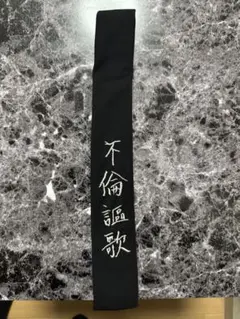 不倫謳歌